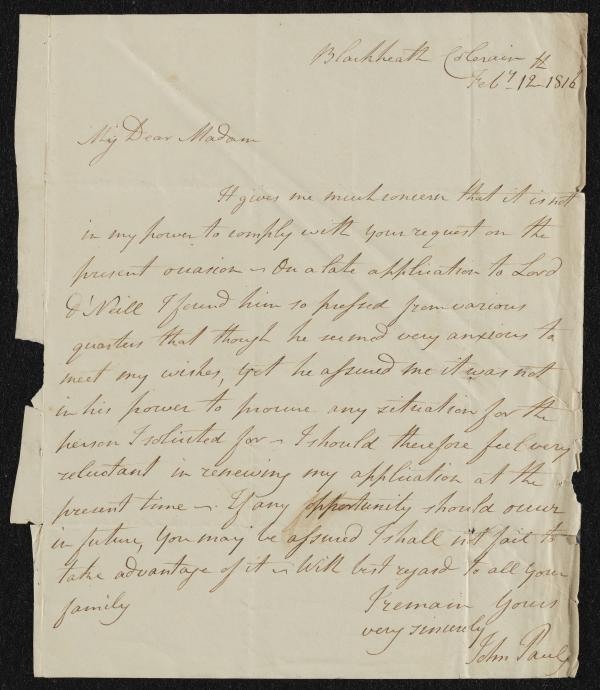 Blackheath Colerain
Feby. 12th 1816
My Dear Madam
It gives me much concern that it is not
in my power to comply with your request on the
present occasion ~ On a late application to Lord
O'Neill I found him so pressed from various
quarters that though he seemed very anxious to
meet my wishes, yet he assured me it was not
in his power to procure any situation for the
person I solicited for ~ I should therefore feel very
reluctant in renewing my application at the
present time ~. If any opportunity should occur
in future, you may be assured I shall not fail to
take advantage of it ~ With best regard to all your
family
I remain yours
very sincerely
John Paul